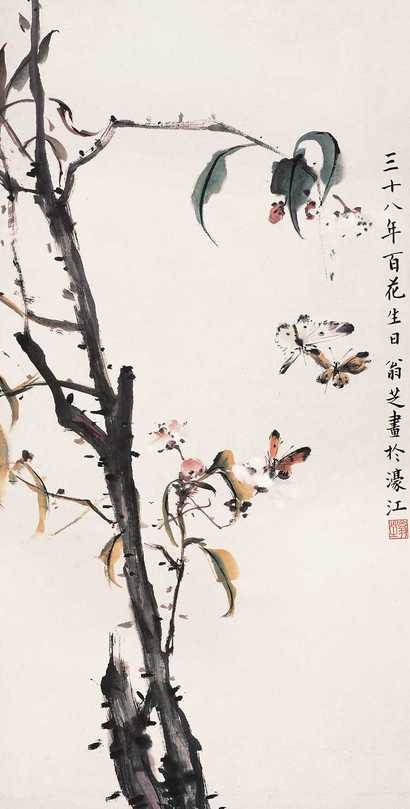 三十八年百花生日翁芝畫於濠江